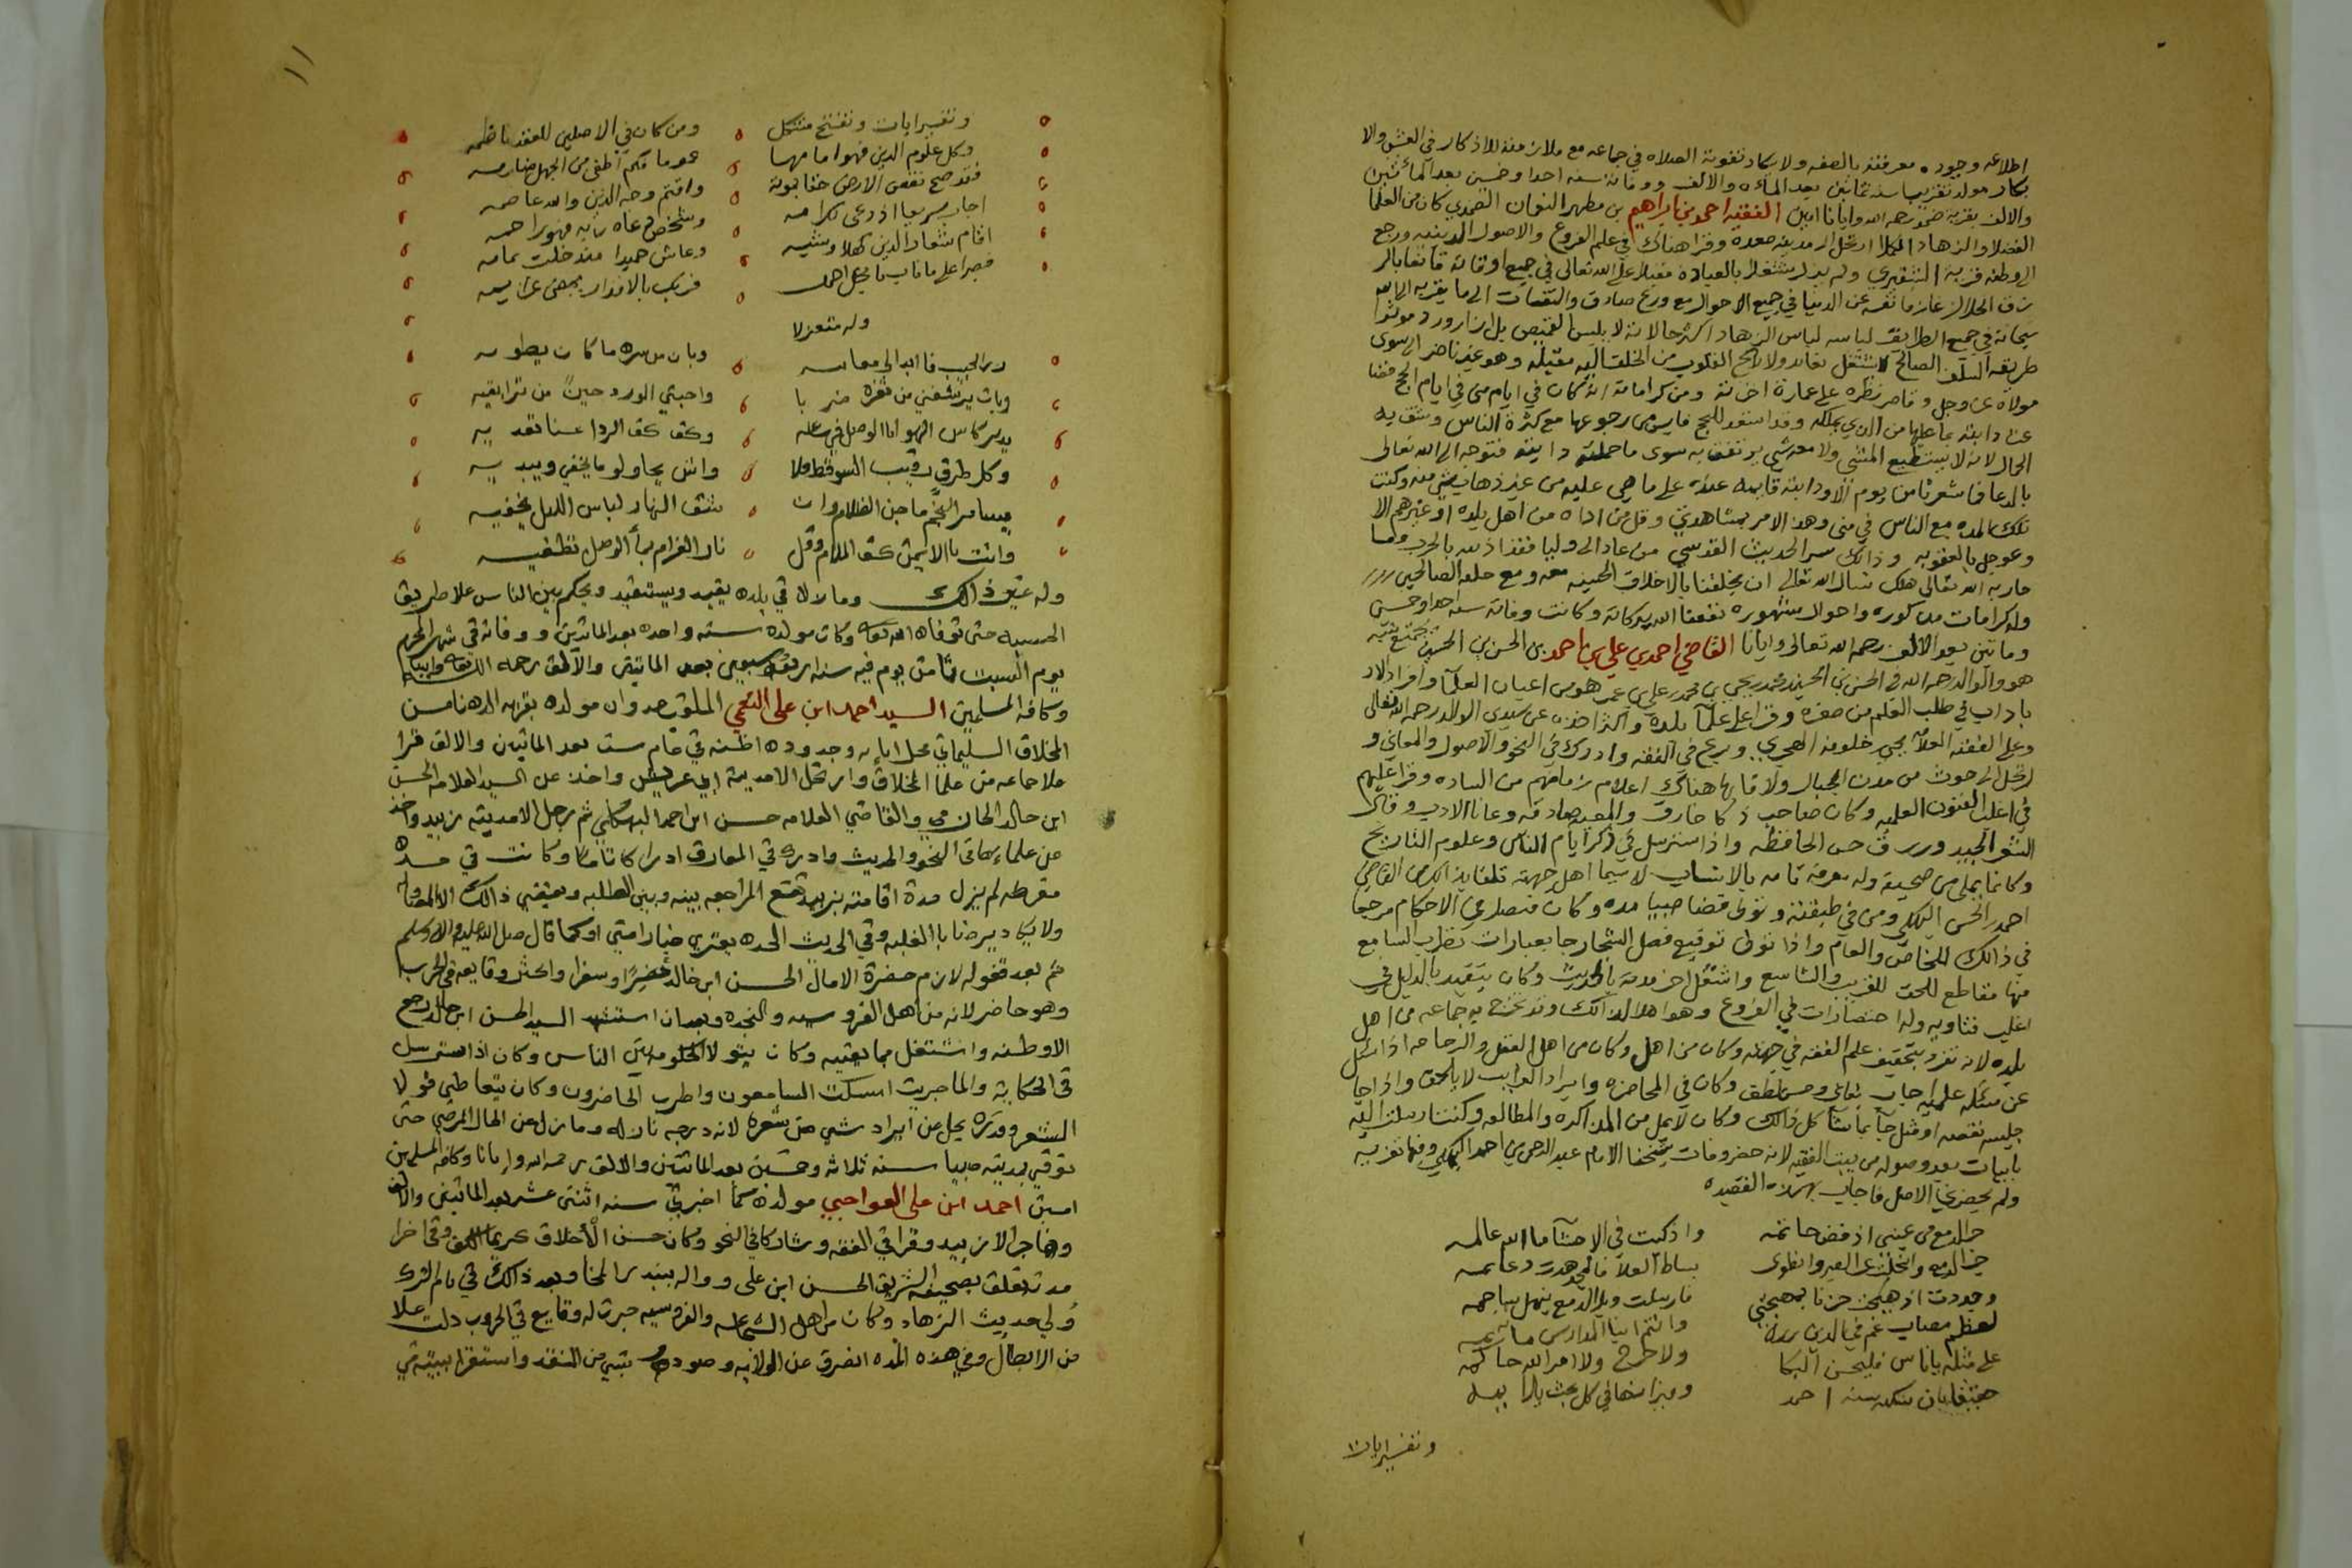 اطلاعه وجوده معرفته بالفقه ولا يكاد تفوته الصلاه في جماعه مع ملازمته للاذكار في العشي والا
بكار مولده تقريبا سنه ثمانين بعد المأه والالف ووفاته سنه احدا وخمسين بعد المأتين
والالف بقريه ضمد رحمه الله وايانا امين الفقيه احمد بن ابراهيم بن مطهر النعمان الضمدي كان من العلما
الفضلا والزهاد الكملا ارتحل الى مدينه صعده وقرا هناك في علم الفروع والاصول الدينيه ورجع
الى وطنه قرية الشقيري ولم يزل مشتغلا بالعباده مقبلا على الله تعالى في جميع اوقاته قانعا بالر
زق الحلال عازما نفسه عن الدنيا في جميع الاحوال مع ورع صادق والتفات الى ما يقربه الى الله
سبحانه في جميع الطرايق لباسه لباس الزهاد اكثر حالاته لا يلبس القميص بل ازار وردا موثرا
طريقه السلف الصالح لا يشتغل بقايد ولا رايح القلوب من الخلق اليه مقبله وهو غير ناضر الى سوى
مولاه عز وجل وقاصر نظره على عمارة اخرته ومن كراماته انه كان في ايام منى في ايام الحج فقنا
عنا دابته بما عليها من الذي يملكه وقد استعد للحج فايس من رجوعها مع كثرة الناس وشق به
الحال لانه لا يستطيع المشي ولا معه شي يرتفق به سوى ما حملته دابته فتوجه الى الله تعالى
بالدعا فما شعرنا من يوم الا ودابته قايمه عنده على ما هي عليه من غير ذهاب شي منه وكنت
تلك المده مع الناس في منى وهذا الامر بمشاهدتي وقل من اذاه من اهل بلده او غيرهم الا
وعوجل بالعقوبه وذالك سر الحديث القدسي من عادا لي وليا فقد اذنته بالحرب وما
حاربه الله تعالى هلك نسال الله تعالى ان يخلقنا بالاخلاق الحسنه معه ومع خلقه الصالحين
وله كرامات مذكوره واحوال مشهوره نفعنا الله ببركاته وكانت وفاته سنه احدا وخمسين
وماتين بعد الالف رحمه الله تعالى وايانا القاضي احمد بن علي بن احمد بن الحسن بن الحسين يجتمع نسبه
هو والوالد رحمه الله في الحسن بن الحسين محمد بن يحيى بن محمد بن علي بن عمر هو من اعيان العلما وافراد الاد
باداب في طلب العلم من صغره وقرا على علما بلده واكثر اخذه عن سيدي الوالد رحمه الله تعالى
وعلى الفقيه العلامه يحيى خلوفه العجيري وبرع في الفقه وادرك في النحو والاصول والمعاني و
ارتحل الى حوث من مدن الجبال ولاقا بها هناك اعلام زمانهم من الساده وقرا عليهم
في اغلب الفنون العلميه وكان صاحب ذكا خارق والمعيه صادقه وعانا الادب وقال
الشعر الجيد ورزق حسن الحافظه واذا استرسل في ذكر ايام الناس وعلوم التاريخ
وكانما يملي من صحيفه وله معرفه تامه بالانساب لاسيما اهل جهته تلقا ذالك من القاضي
احمد بن الحسن البهكلي ومن في طبقته وتولى قضا صبيا مده وكان فيصلا في الاحكام مرجعا
في ذالك للخاص والعام واذا تولى توقيع فصل الشجار جا بعبارات تطرب السامع
فيها مقاطع للحق للقريب والشاسع واشتغل اخر مدته بالحديث وكان يتقيد بالدليل في
اغلب فتاويه وله اختصارات في الفروع وهو اهلا لذالك وقد تخرج به جماعه من اهل
بلده لانه تفرد بتحقيق علم الفقه في جهته وكان من اهل وكان من اهل العقل والرجاحه اذا سئل
عن مسئله علميه اجاب بتاني وحسن لطف وكان في المحاضره وايراد الغرايب لا يلحق واذا جا
جليسه بقصه او مثل جا بما يشاكل ذالك وكان لا يمل من المذاكره والمطالعه وكنت ارسلت اليه
بابيات بعد وصوله من بيت الفقيه لانه حضر وفات شيخنا الامام عبد الرحمن بن احمد البهكلي وفيها تعزيه
ولم يحضرني الاصل فاجاب بهذه القصيده
جرا لدمع من عيني اذ فض خاتمه واذكيت في الاحشا ما الله عالمه
بساط العلا فالمجد هدت دعايمه
وجددت اذ هيجت حزنا بمهجتي فارسلت وبل الدمع ينهل ساجمه
لعظم مصاب عم في الدين رزئه وانتم ابنا المدارس ماتمه
على مثله يا ناس فليحسن البكا ولا حرج ولا امر الله حاكمه
حقيقا بان تبكيه سنه احمد وميزانها في كل بحث
وتفسير ايات
١١
وتفسير ايات وتفتح مشكل ومن كان في الاصلين للعقد ناظمه
وكل علوم الدين فهو امامها هو ما فكم اطفى من الجهل ضارمه
فقد صح نقص الارض حقا بموته واقتم وجه الدين والله عاصمه
اجاب سريعا اذ دعى لكرامه وشخص دعاه ربه فهو راحمه
اقام شعار الدين كهلا وشيبه وعاش حميدا منذ خلت تمايمه
فصبرا على ما ناب يا نجل احمد فربك بالاقدار يمضي عزايمه
وله متغزلا
زر الحبيب فابدا لي معانيه وبان من سره ما كان يطويه
وبات يرشفني من ثغره ضربا واجتني الورد حينا من تراقيه
يدير كاس الهوا انا الوصل في مهل وكف كف الردا عنا تعديه
وكل طرف رقيب السو قط فلا واش يحاول ما يخفي ويبديه
يسامر النجم ما جن الظلام وان شق النهار لباس الليل يخفيه
وانت يا لايمي كف الملام وقل نار الغرام بمأ الوصل تطفيه
وله غير ذالك ومازال في بلده يفيد ويستفيد ويحكم بين الناس علا طريق
الحسبه حتى توفاه الله تعالى وكان مولده سنه واحده بعد الماتين ووفاته في شهر المحرم
يوم السبت ثامن يوم فيه سنه اربعه وسبعين بعد الماتين والالف رحمه الله تعالى وايانا
وكافه المسلمين السيد احمد ابن علي النعمي الملقب صدوان مولده بقريه الدهنا من
المخلاف السليماني محل ابايه وجدوده اظنه في عام ست بعد الماتين والالف قرا
علا جماعه من علما المخلاف وارتحل الا مدينة ابي عريش واخذ عن السيد العلامه الحسن
ابن خالد الحازمي والقاضي العلامه حسن ابن احمد البهكلي ثم رحل الا مدينه زبيد واخذ
من علماءها في النحو والحديث وادرك في المعارف ادراكا تاما وكانت في حده
مفرطه لم يزل مدة اقامته بزبيد تقع المراجعه بينه وبين الطلبه ويفضي ذالك الا المعاداه
ولا يكاد يرضا با الغلبه وفي الحديث الحده يعتري خيار امتي او كما قال صلى الله عليه واله وسلم
ثم بعد قفوله لازم حضرة الامام الحسن ابن خالد حضرا وسفرا واكثر وقايعه في الحرب
وهو حاضر لانه من اهل الفروسيه والنجده وبعد ان استشهد السيد الحسن ابن خالد رجع
الا وطنه واشتغل بما يعنيه وكان يتولا الحكومه بين الناس وكان اذا استرسل
في الحكاية والماجريت اسكت السامعون واطرب الحاضرون وكان يتعاطي قولا
الشعر وقدره يجل عن ايراد شي من شعره لانه درجه نازله ومازل عن الحال المرضي حتى
توفي بمدينه صبيا سنه ثلاثه وخمسين بعد الماتين والالف رحمه الله وايانا وكافه المسلمين
امين احمد ابن علي العواجي مولده كما اخبرني سنه اثنتى عشر بعد الماتين والالف
وهاجر الا زبيد وقرا في الفقه وشارك في النحو وكان حسن الاخلاق كريما الكف وفي اخرا
مدته تعلق بصحبة الشريف الحسن ابن علي وواله ببندر المخا وبعد ذالك في ايام الترك
ولي حديث الزهاد وكان من اهل الشجاعه والفروسيه جرت له وقايع في الحروب دلت علا
من الابطال وفي هذه المده انصرف عن الولايه وصودر بشي من النقد واستقرا ببيته في